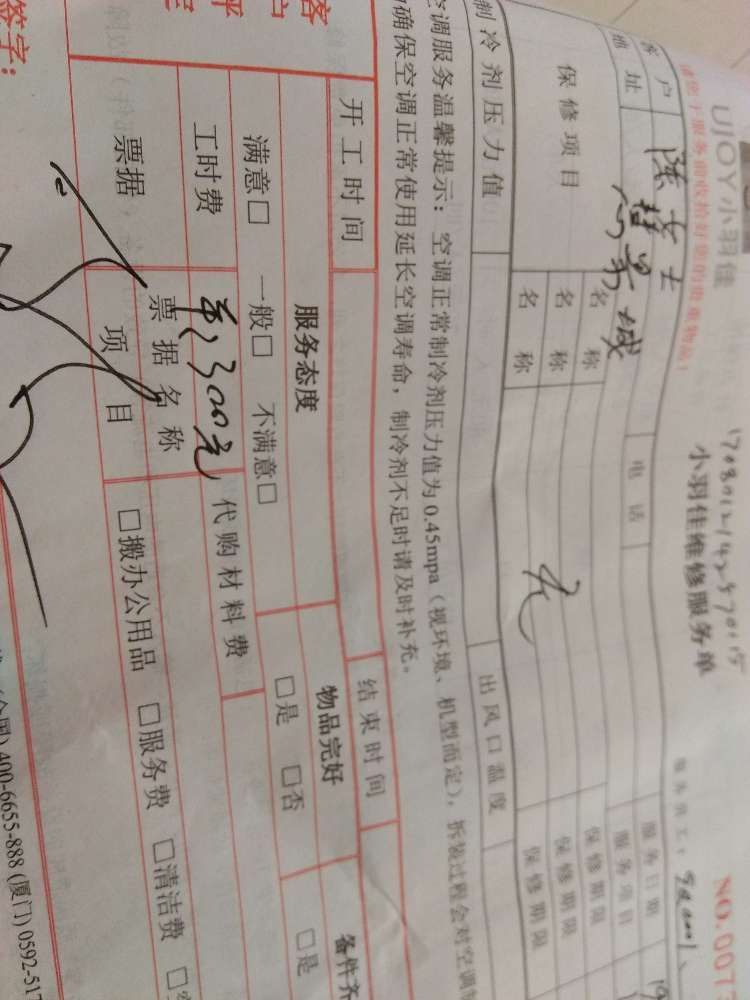 UJOY小羽佳
小羽佳维修服务单
NO.007
请您于服务前收拾好您的贵重物品!
客户 陈女士 电话 服务日期
地址 服务项目
保修项目 名称 保修期限
名称 保修期限
名称 无 保修期限
制冷剂压力值 出风口温度
空调服务温馨提示：空调正常制冷剂压力值为0.45mpa（视环境、机型而定），拆装过程会对空调制
确保空调正常使用延长空调寿命，制冷剂不足时请及时补充。
开工时间 结束时间
服务态度 物品完好 备件齐
满意□ 一般□ 不满意□ □是 □否 □是
工时费 300元 代购材料费
票据 票据名称
项目 □搬办公用品 □服务费 □清洁费
签字：
400-6655-888 (厦门) 0592-517